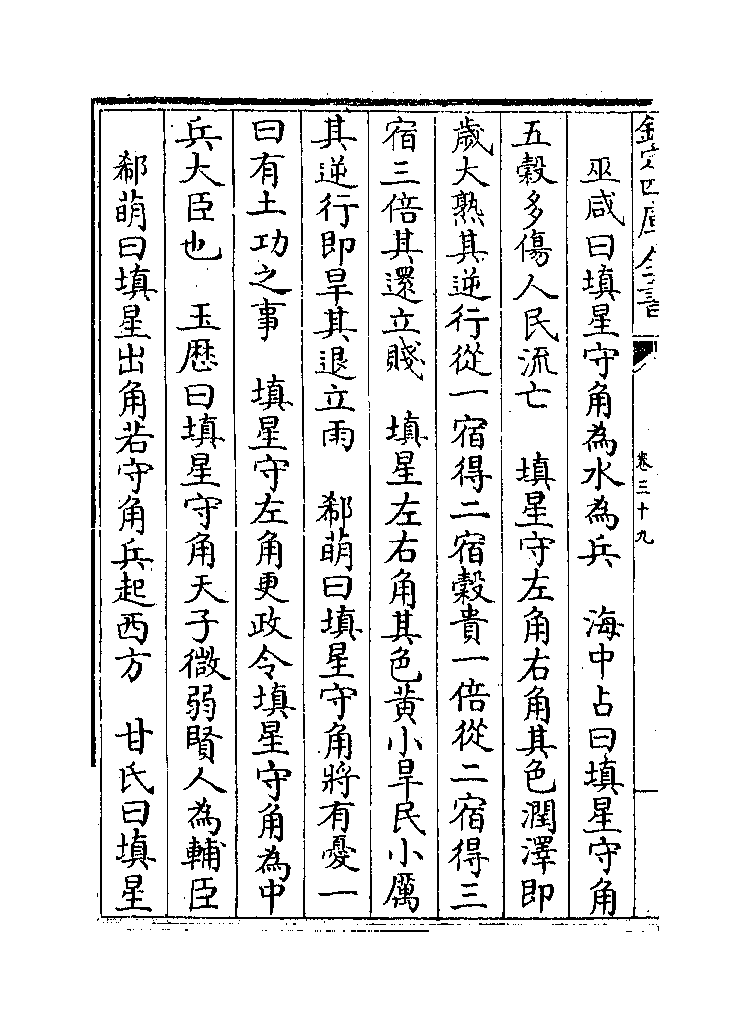 欽定四庫全書
卷三十九
巫咸曰填星守角為水為兵　海中占曰填星守角
五穀多傷人民流亡　填星守左角右角其色潤澤即
歲大熟其逆行從一宿得二宿穀貴一倍從二宿得三
宿三倍其還立賤　填星左右角其色黄小旱民小厲
其逆行即旱其退立雨　郗萌曰填星守角將有憂一
曰有土功之事　填星守左角更政令填星守角為中
兵大臣也　玉厯曰填星守角天子微弱賢人為輔臣
郗萌曰填星出角若守角兵起西方　甘氏曰填星